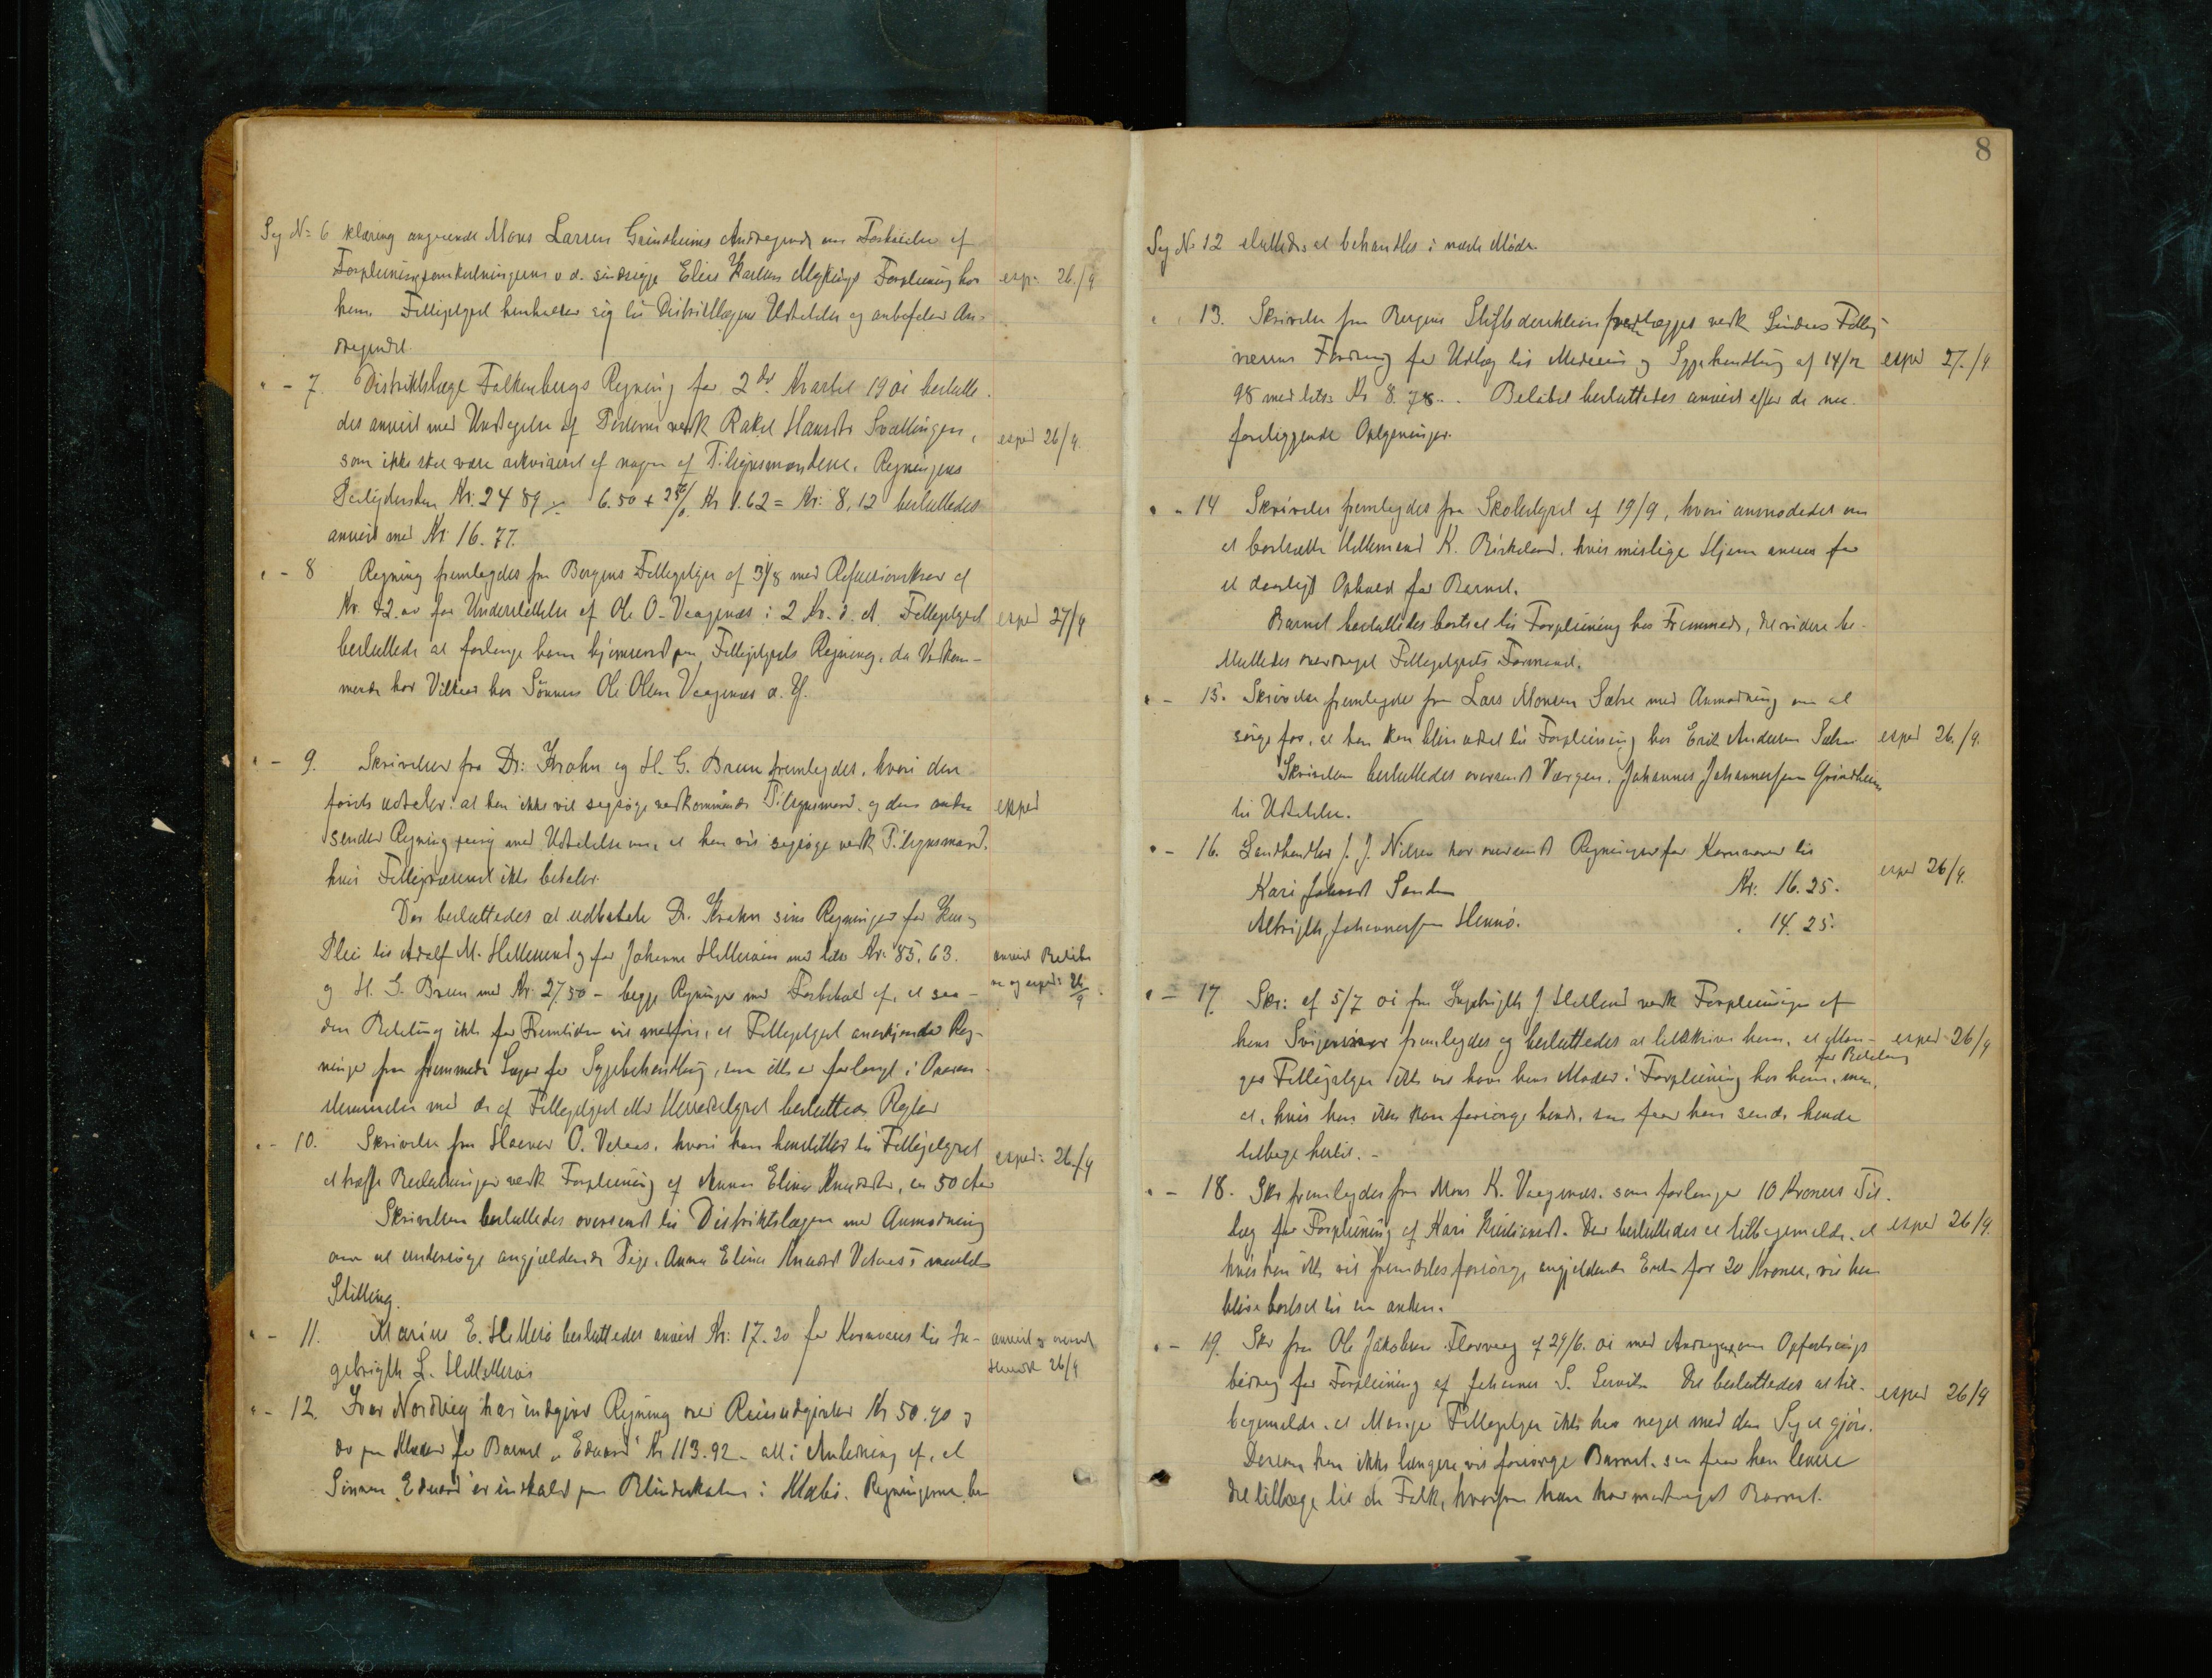 Sag No 6 klæring angaaende Mons Larsen Grindheims Andragende om Forhøielse af
Forpleiningsomkostningerne v. d. sindssyge Elias Karlsen Myklings Forpleining hos
hem. Fattigstyret henholder sig til Distriktlægens Udtalelse og anbefaler An-
dragendet.
exp. 26./9
" - 7. Distriktslæge Falkenbergs Regning for 2det Kvartal 1901 beslutte-
des anvist med Undtagelse af Posterne vedk Rakel Hansdtr Svællingen,
som ikke skal være rekvireret af nogen af Tilsynsmændene. Regningens
Paalydende Kr. 24 89 ÷ 6.50 + 25% Kr 1.62 = Kr: 8,12 besluttedes
anvist med Kr. 16.77.
exped 26/9.
" - 8 Regning fremlagdes fra Bergens Fattigstyre af 31/8 med Refusionskrav af
Kr. 42.00 for Understøttelse af Ole O. Vaagenes i 2 Kv. d. A. Fattigstyret
besluttede at forlange ham hjemsendt paa Fattigstyrets Regning, da Vedkom-
mende har Vilkaar hos Sønnen Ole Olsen Vaagenes d. Y.
exped 27/9
" - 9. Skrivelser fra Dr: Krohn og H. G. Bruun fremlagdes, hvori den
første udtaler: at han ikke vil sagsøge vedkommende Tilsynsmand, og den anden
sender Regning paany med Udtalelse om, at han vil sagsøge vedk Tilsynsmand,
hvis Fattigvæsenet ikke betaler.
exped
Der besluttedes at udbetale Dr. Krohn sine Regninger for Kur og
Pleie til Adolf M. Hellesund og for Johanne Hellesøien med tils. Kr. 85,63.
og H. G. Bruun med Kr. 27.50 - begge Regninger med Forbehold af, at saa-
dan Betaling ikke for Fremtiden vil medføre, at Fattigstyret anerkjender Reg-
ninger fra fremmede Læger for Sygebehandling, som ikke er forlangt i Overens-
stemmelse med de af Fattigstyret eller Herredstyret besluttede Regler
anvist Beløbe
ne og exped: 26/9.
" - 10. Skrivelse fra Haavar O. Vetaas, hvori han henstiller til Fattigstyret
at træffe Beslutninger vedk Forpleining af Anna Elina Knutsdtr, ca 50 Aar
Skrivelsen besluttedes oversendt til Distriktslægen med Anmodning
om at undersøge angjældende Pige, Anna Elina Knutsdt Vetaas's
Stilling.
exped: 26./9
" - 11. Marius E. Hellesø besluttedes anvist Kr: 17.20 for Kornvarer til In-
gebrigth L.
anvist og oversendt
26/9
" - 12. Ivar Nordvig har indgivet Regning over Reiseudgivter Kr 50.90 og
do paa Klæder for Barnet "Edvard" Kr 113.92 - alt i Anledning af, at
Sønnen "Edvard" er indkaldt paa Blindeskolen i Klæbo. Regningerne be
8
Sag No 12 sluttedes at behandles i næste Møde.
" 13. Skrivelse fra Bergens Stiftsdirektion fremlægges vedk Lindaas Fattig-
væsens Fordring for Udlæg til Medecin og Sygebehandling af 14/12
98 med tils: Kr 8.78. Beløbet besluttedes anvist efter de nu
foreliggende Oplysninger.
exped 27./9
" " 14 Skrivelse fremlagdes fra Skolestyret af 19/9, hvori anmodedes om
at bortsætte K. Birkeland, hvis mislige Hjem ansees for
et daarligt Ophold for Barnet.
Barnet besluttedes bortsat til Forpleining hos Fremmede, det videre be-
sluttedes overdraget Fattigstyrets Formand.
" - 15. Skrivelse fremlagdes fra Lars Monsen Sætre med Anmodning om at
sørge for, at han kan blive udsat til Forpleining hos Erik Andersen Sætre
Skrivelsen besluttedes oversendt Værgen, Johannes Johannessen Grindheim
til Udtalelse.
exped 26./9.
" - 16. Landhandler J. J. Nilsen har oversendt Regninger for Kornvarer til
Kari Johnsdt Sandnes Kr: 16.25.
Albrigth Johannessen Hennø. " 14.25.
exped 26/9.
" - 17. Skr: af 5/7 01 fra Ingebrigth J Helland vedk Forpleiningen af
hans Svigermoder fremlagdes og besluttedes at tilskrive ham, at Man-
ges Fattigstyre ikke vil have hans Moder i Forpleining hos ham for Betaling, men,
at, hvis han ikke kan forsørge hende, saa faar han sende hende
tilbage hertil. -
exped 26/9
" - 18. Skr fremlagdes fra Mons K. Vaagenes, som forlanger 10 Kroners Til-
læg for Forpleining af Kari. Der besluttedes at tilbagemelde, at
hvis han ikke vil fremdeles forsørge angjældende Enke for 20 Kroner, vil hun
blive bortsat til en anden.
exped 26/9.
" - 19. Skr fra Ole Jakobsen Florvaag af 29/6. 01 med Andragende om Opfostrings
bidrag for Forpleining af Johannes S. Det besluttedes at til-
bagemelde, at Mangers Fattigstyre ikke har noget med den Sag at gjøre.
Dersom han ikke længere vil forsørge Barnet, saa faar han levere
det tilbage til de Folk, hvorfra han har modtaget Barnet.
exped 26/9